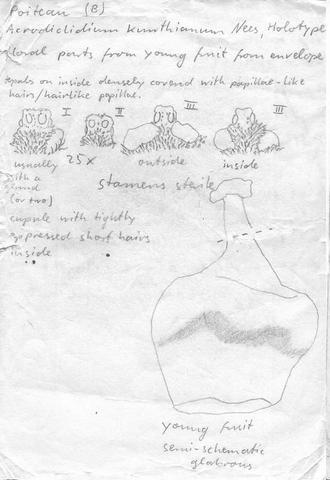 Poiteau (B)
Acrodiclidium kunthianum Nees, Holotype
floral parts from young fruit from envelope
tepals on inside densely covered with papillae-like
hairs/hairlike papillae.
I II III III
usually
with a
(or two)
25x
outside
inside
stamens sterile
cupule with tightly
appressed short hairs
inside
young fruit
semi-schematic
glabrous